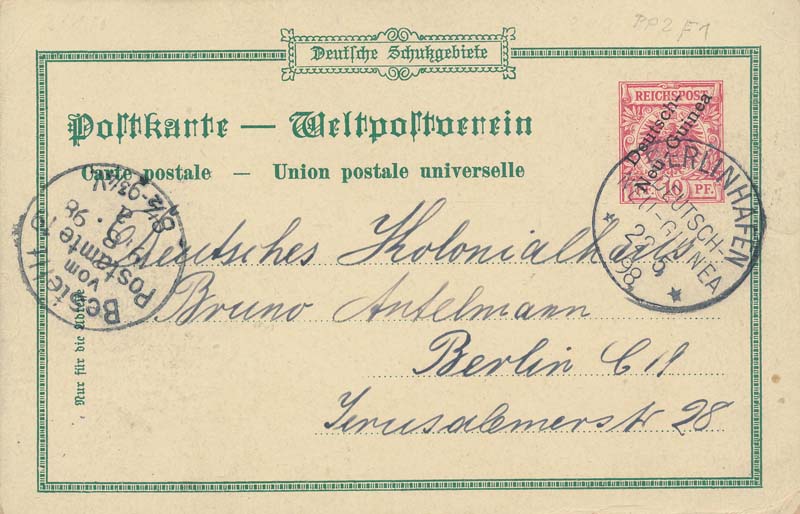 PP2 F1
Deutsche Schutzgebiete
REICHSPOST
Deutsch-
Neu-Guinea
10 PF.
Postkarte — Weltpostverein
Carte postale — Union postale universelle
BERLINHAFEN
DEUTSCH-
NEU-GUINEA
22 5
98
Bestellt
vom
Postamte 19
98
8½-9¾V.
Deutsches Kolonialhaus
Bruno Antelmann
Berlin C 19
Jerusalemerstr 28
Nur für die Adresse